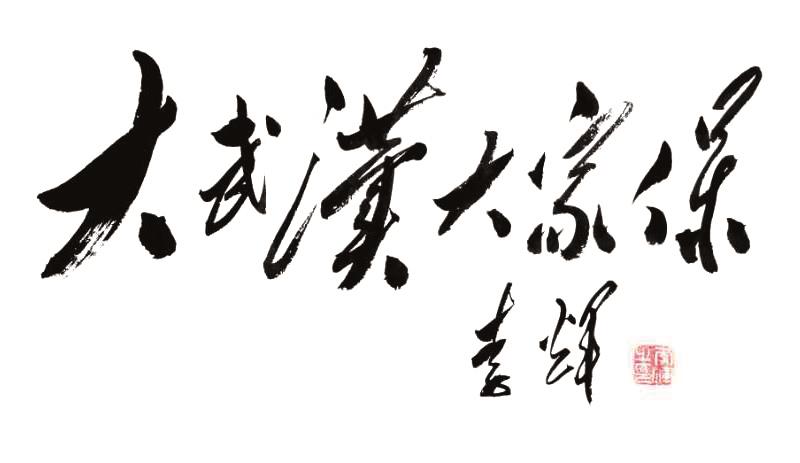 大武漢大家保
李輝